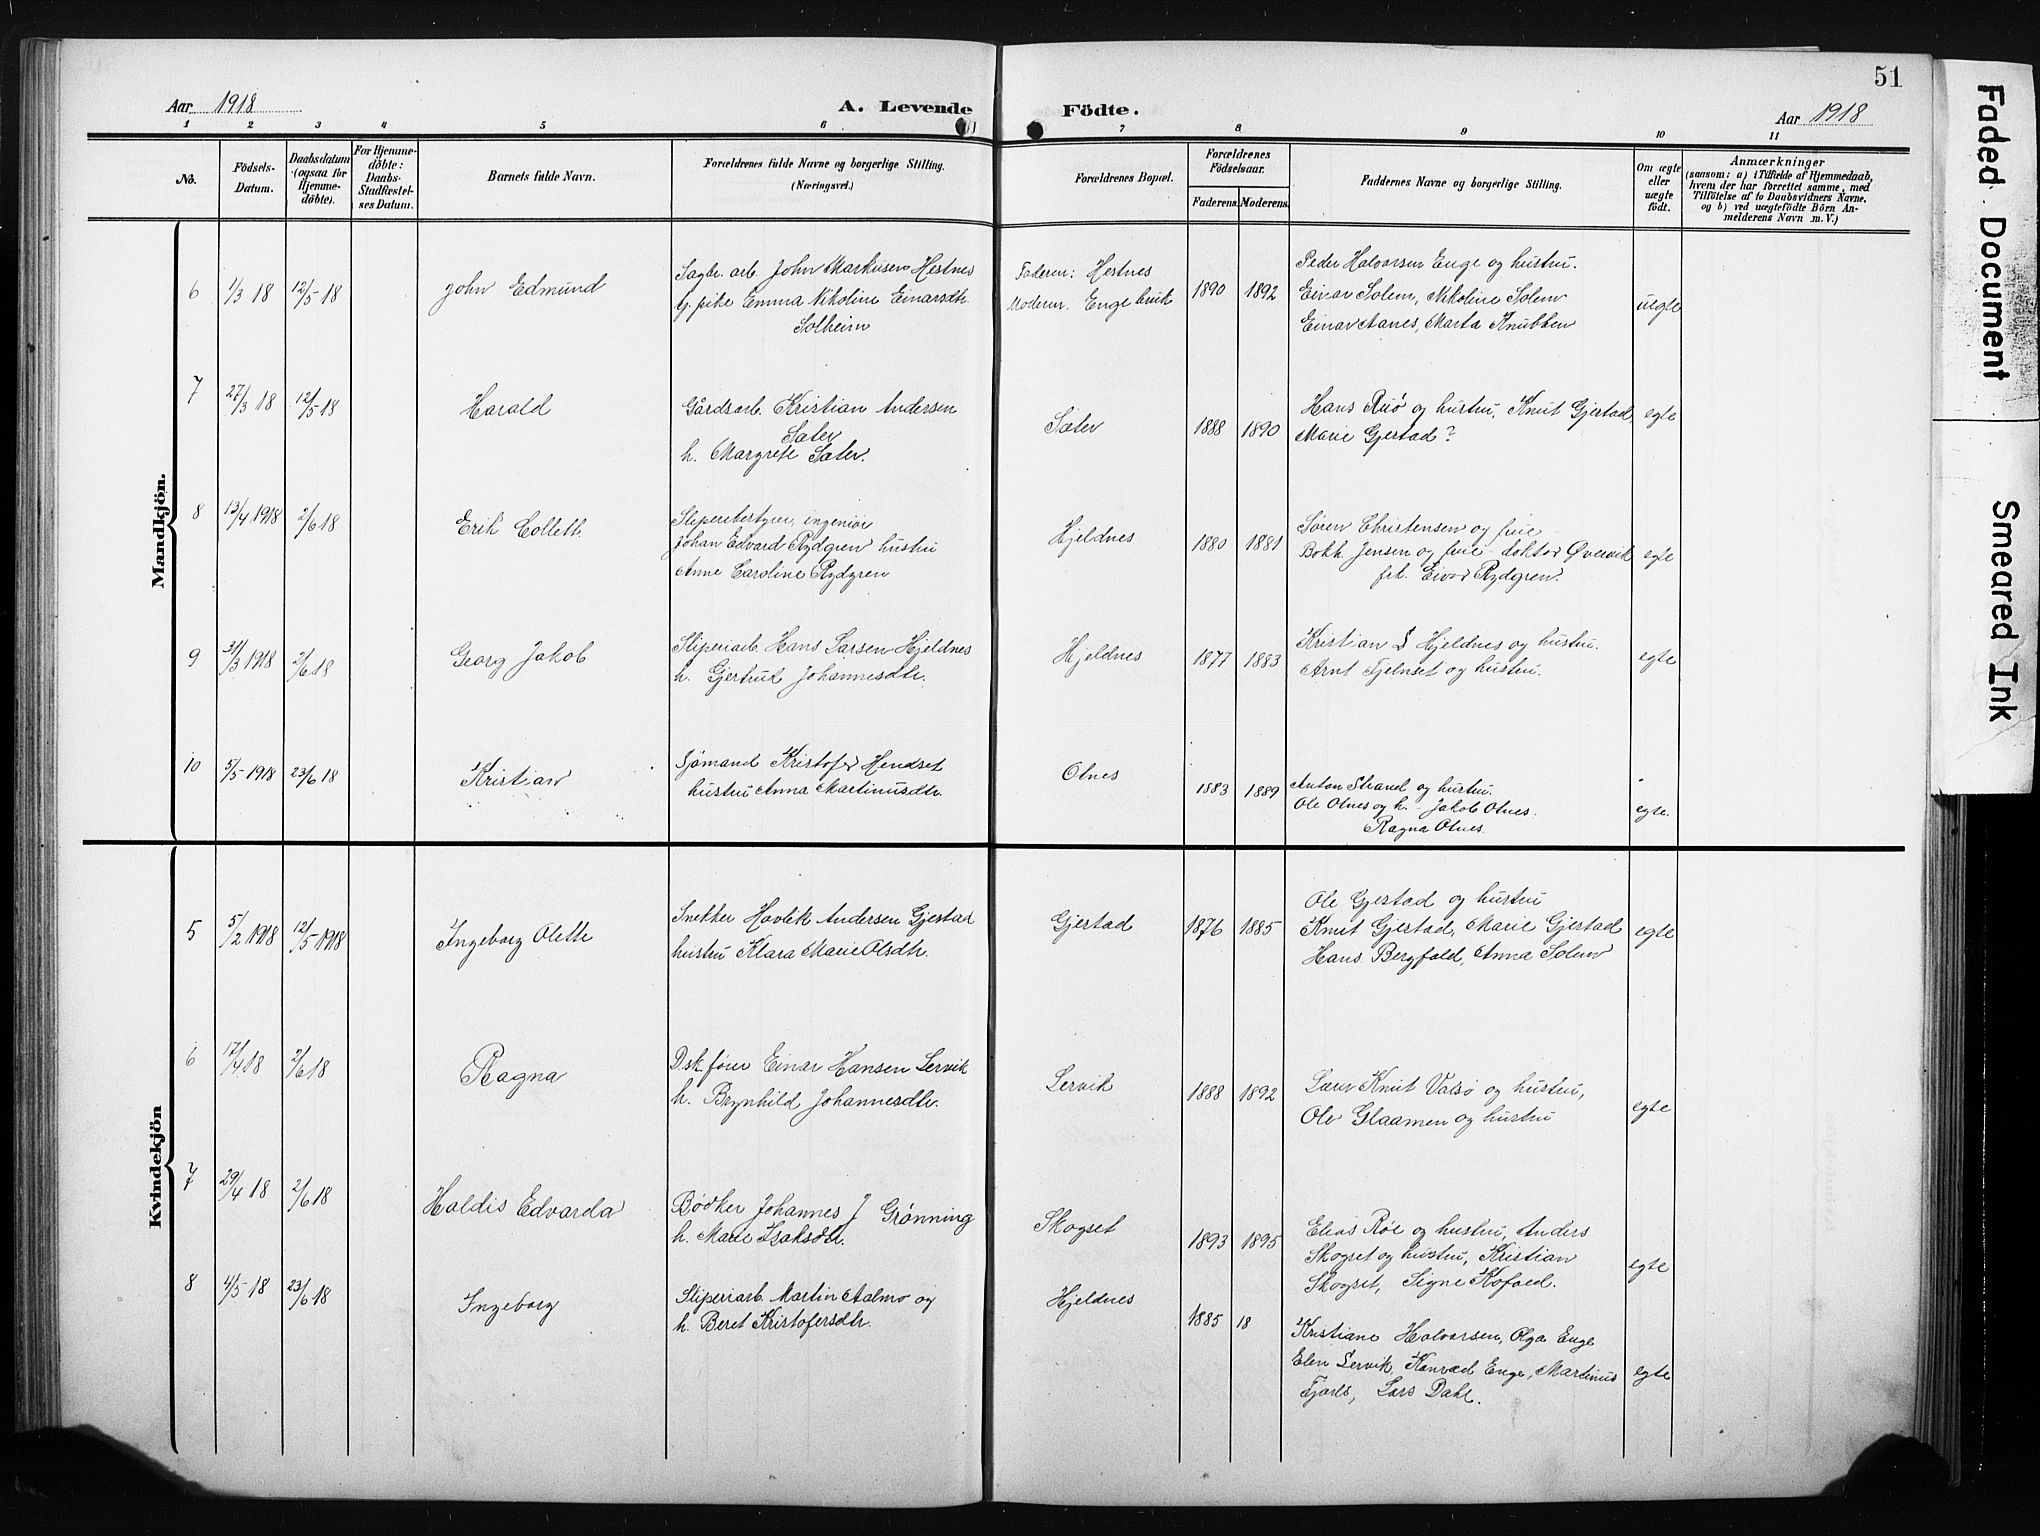 51
Aar 1918
A. Levende
Födte.
Aar 1918
1 2 3 4 5 6 7 8 9 10 11
No.
Födsels-
Datum.
Daabsdatum
(ogsaa for
Hjemme-
döbte).
For Hjemme-
döbte:
Daabs-
Stadfæstel-
ses Datum.
Barnets fulde Navn.
Forældrenes fulde Navne og borgerlige Stilling.
(Næringsvei.)
Forældrenes Bopæl.
Forældrenes
Födselsaar.
Faderens.
Moderens.
Faddernes Navne og borgerlige Stilling.
Om ægte
eller
uægte
födt.
Anmærkninger
(saasom: a) i Tilfælde af Hjemmedaab,
hvem der har forrettet samme, med
Tilföielse af to Daabsvidners Navne,
og b) ved uægtefödte Börn An-
melderens Navn m. V.)
Mandkjön.
6 1/3 18 12/5 18 John Edmund
Sagbr. arb. John Markusen Hestnes
g. pike Emma Nikoline Einarsdtr.
Solheim
Faderen: Hestnes
Moderen: Engebvik
1890 1892
Peder Halvorsen Enge og hustru.
Einar Solem, Nikoline Solem
Einar Aanes, Marta Knubben
uegte
7 27/3 18 12/5 18 Harald
Gårdsarb. Kristian Andersen
Sæter
h. Margrete Sæter.
Sæter 1888 1890
Hans Ruø og hustru, Knut Gjerstad,
Marie Gjerstad?
egte
8 13/4 1918 2/6 18 Erik Collett.
Sliperibestyrer, ingeniør
Johan Edvard Rydgren hustru
Anne Caroline Rydgren
Hjeldnes 1880 1881
Søren Christensen og frue
Bokh. Jensen og frue - doktor Øvervik
frk. Eivor Rydgren.
egte
9 31/3 1918 2/6 18 Georg Jakob
Sliperiarb. Hans Larsen Hjeldnes
h. Gjertrud Johannesdtr.
Hjeldnes 1877 1883
Kristian Hjeldnes og hustru.
Arnt Fjelnset og hustru.
egte
10 5/5 1918 23/6 18 Kristian
Sjømand Kristofer Hendset
hustru Anna Martinusdtr.
Otnes 1883 1889
Anton Strand og hustru.
Ole Otnes og h. - Jakob Otnes.
Ragna Otnes.
egte.
Kvindekjön
5 5/2 1918 12/5 1918 Ingeborg Olette
Snekker Hovlik Andersen Gjerstad
hustru Klara Marie Olsdtr.
Gjerstad 1876 1885
Ole Gjerstad og hustru
Knut Gjerstad, Marie Gjerstad
Hans Bergfald, Anna Solem
egte
6 17/4 18 2/6 18 Ragna
D.sk. fører Einar Hansen Lervik
h. Brynhild Johannesdtr.
Lervik 1888 1892
Lærer Knut Valsø og hustru,
Ole Glaamen og hustru
egte
7 29/4 18 2/6 18 Haldis Edvarda
Bødker Johannes J Grønning
h. Marie Isaksdtr.
Skogset 1893 1895
Elias Røe og hustru, Anders
Skogset og hustru, Kristian
Skogset, Signe Kofoed.
egte
8 4/5 18 23/6 18 Ingeborg
Sliperiarb. Martin Aalmo og
h. Beret Kristofersdtr.
Hjeldnes 1885 18
Kristiane Halvorsen, Olga Enge
Elen Lervik, Konrad Enge, Martinus
Fjorls, Lars Dahl.
egte
Faded Document
Smeared Ink